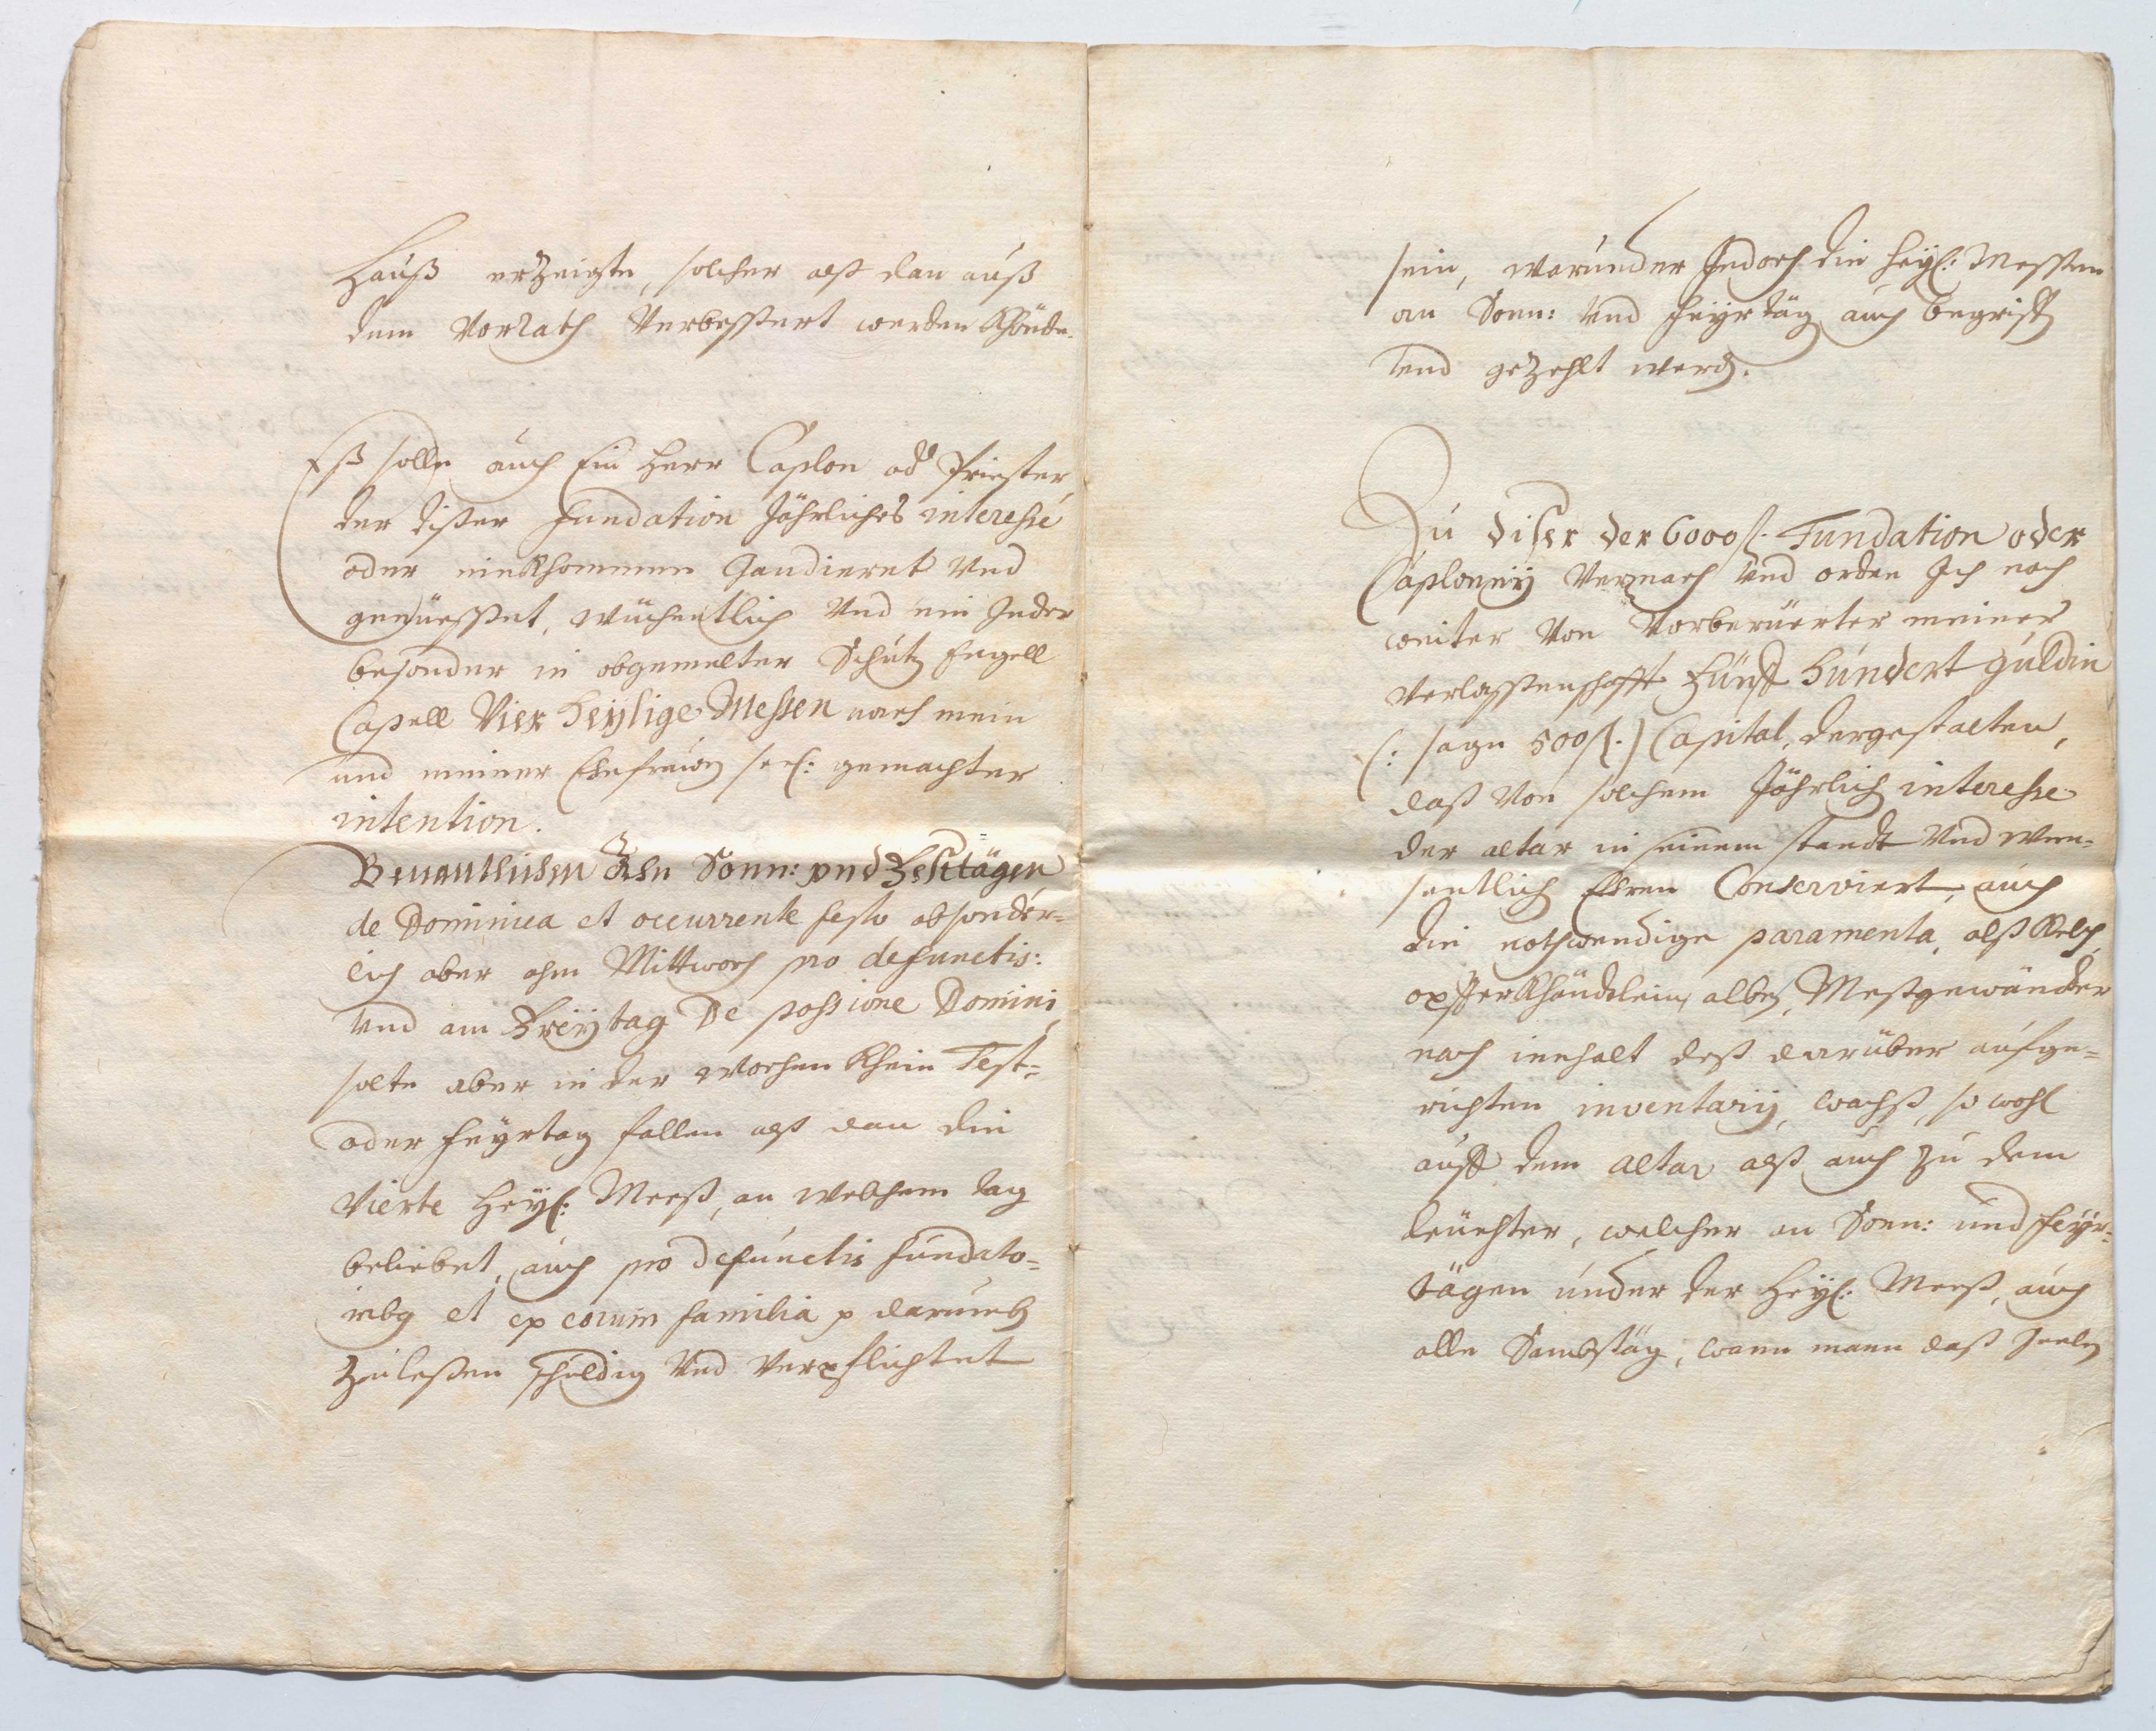 Hauß erzeigte, solcher alß dan auß
dem Vorrath Verbessert werden khönde.
Eß solle auch Ein Herr Caplon od Priester,
der dißer Fundation Jährliches interesse
oder einkhommen Gaudieret Und
geniesset, wüchentlich Und ein Jeder
besonder in obgemelter Schutz Engell
Capell Vier heylige Messen nach mein
und meiner Ehefrauen seel: gemachter
intention.
Benanthlichen Ahn Sonn: vnd Festtägen
de Dominica et occurrente festo absonder=
lich aber ahm Mittwoch pro defunctis:
Und am Freytag De passione Domini,
solte aber in der Wochen khein Fest=
oder Feyrtag fallen alß dan die
Vierte Heyl: Meeß, an welchem tag
beliebet, auch pro Defunctis fundato=
ribg et ex eorum familia p darumb
Zuleßen schuldig Und Verpflichtet
sein, warunder Jedoch die heyl: Messen
an Sonn: Und Feyrtäg auch begriffen
Und gezehlt werden.
Zu diser der 6000 fl. Fundation oder
Caploney Vermach Und orden Ich noch
weiter Von Vorberüerter meiner
Verlassenschafft Fünff Hundert Guldin
(: sage 500 fl.) Capital, dergestalten,
daß Von solchem Jährlich interesse
der altar in seinem standt Und Wee=
sentlich Ehren Conserviert, auch
die nothwendige paramenta, alß Kelch,
opfferkhändtlein, alben, Meßgewänder
nach innhalt deß darüber aufge=
richten inventarij, wachß, so wohl
auff dem altar alß auch zu dem
leüchter, welcher an Sonn: und Feyr=
tägen under der Heyl: Meeß, auch
alle Sambstäg, wann mann daß Seelen